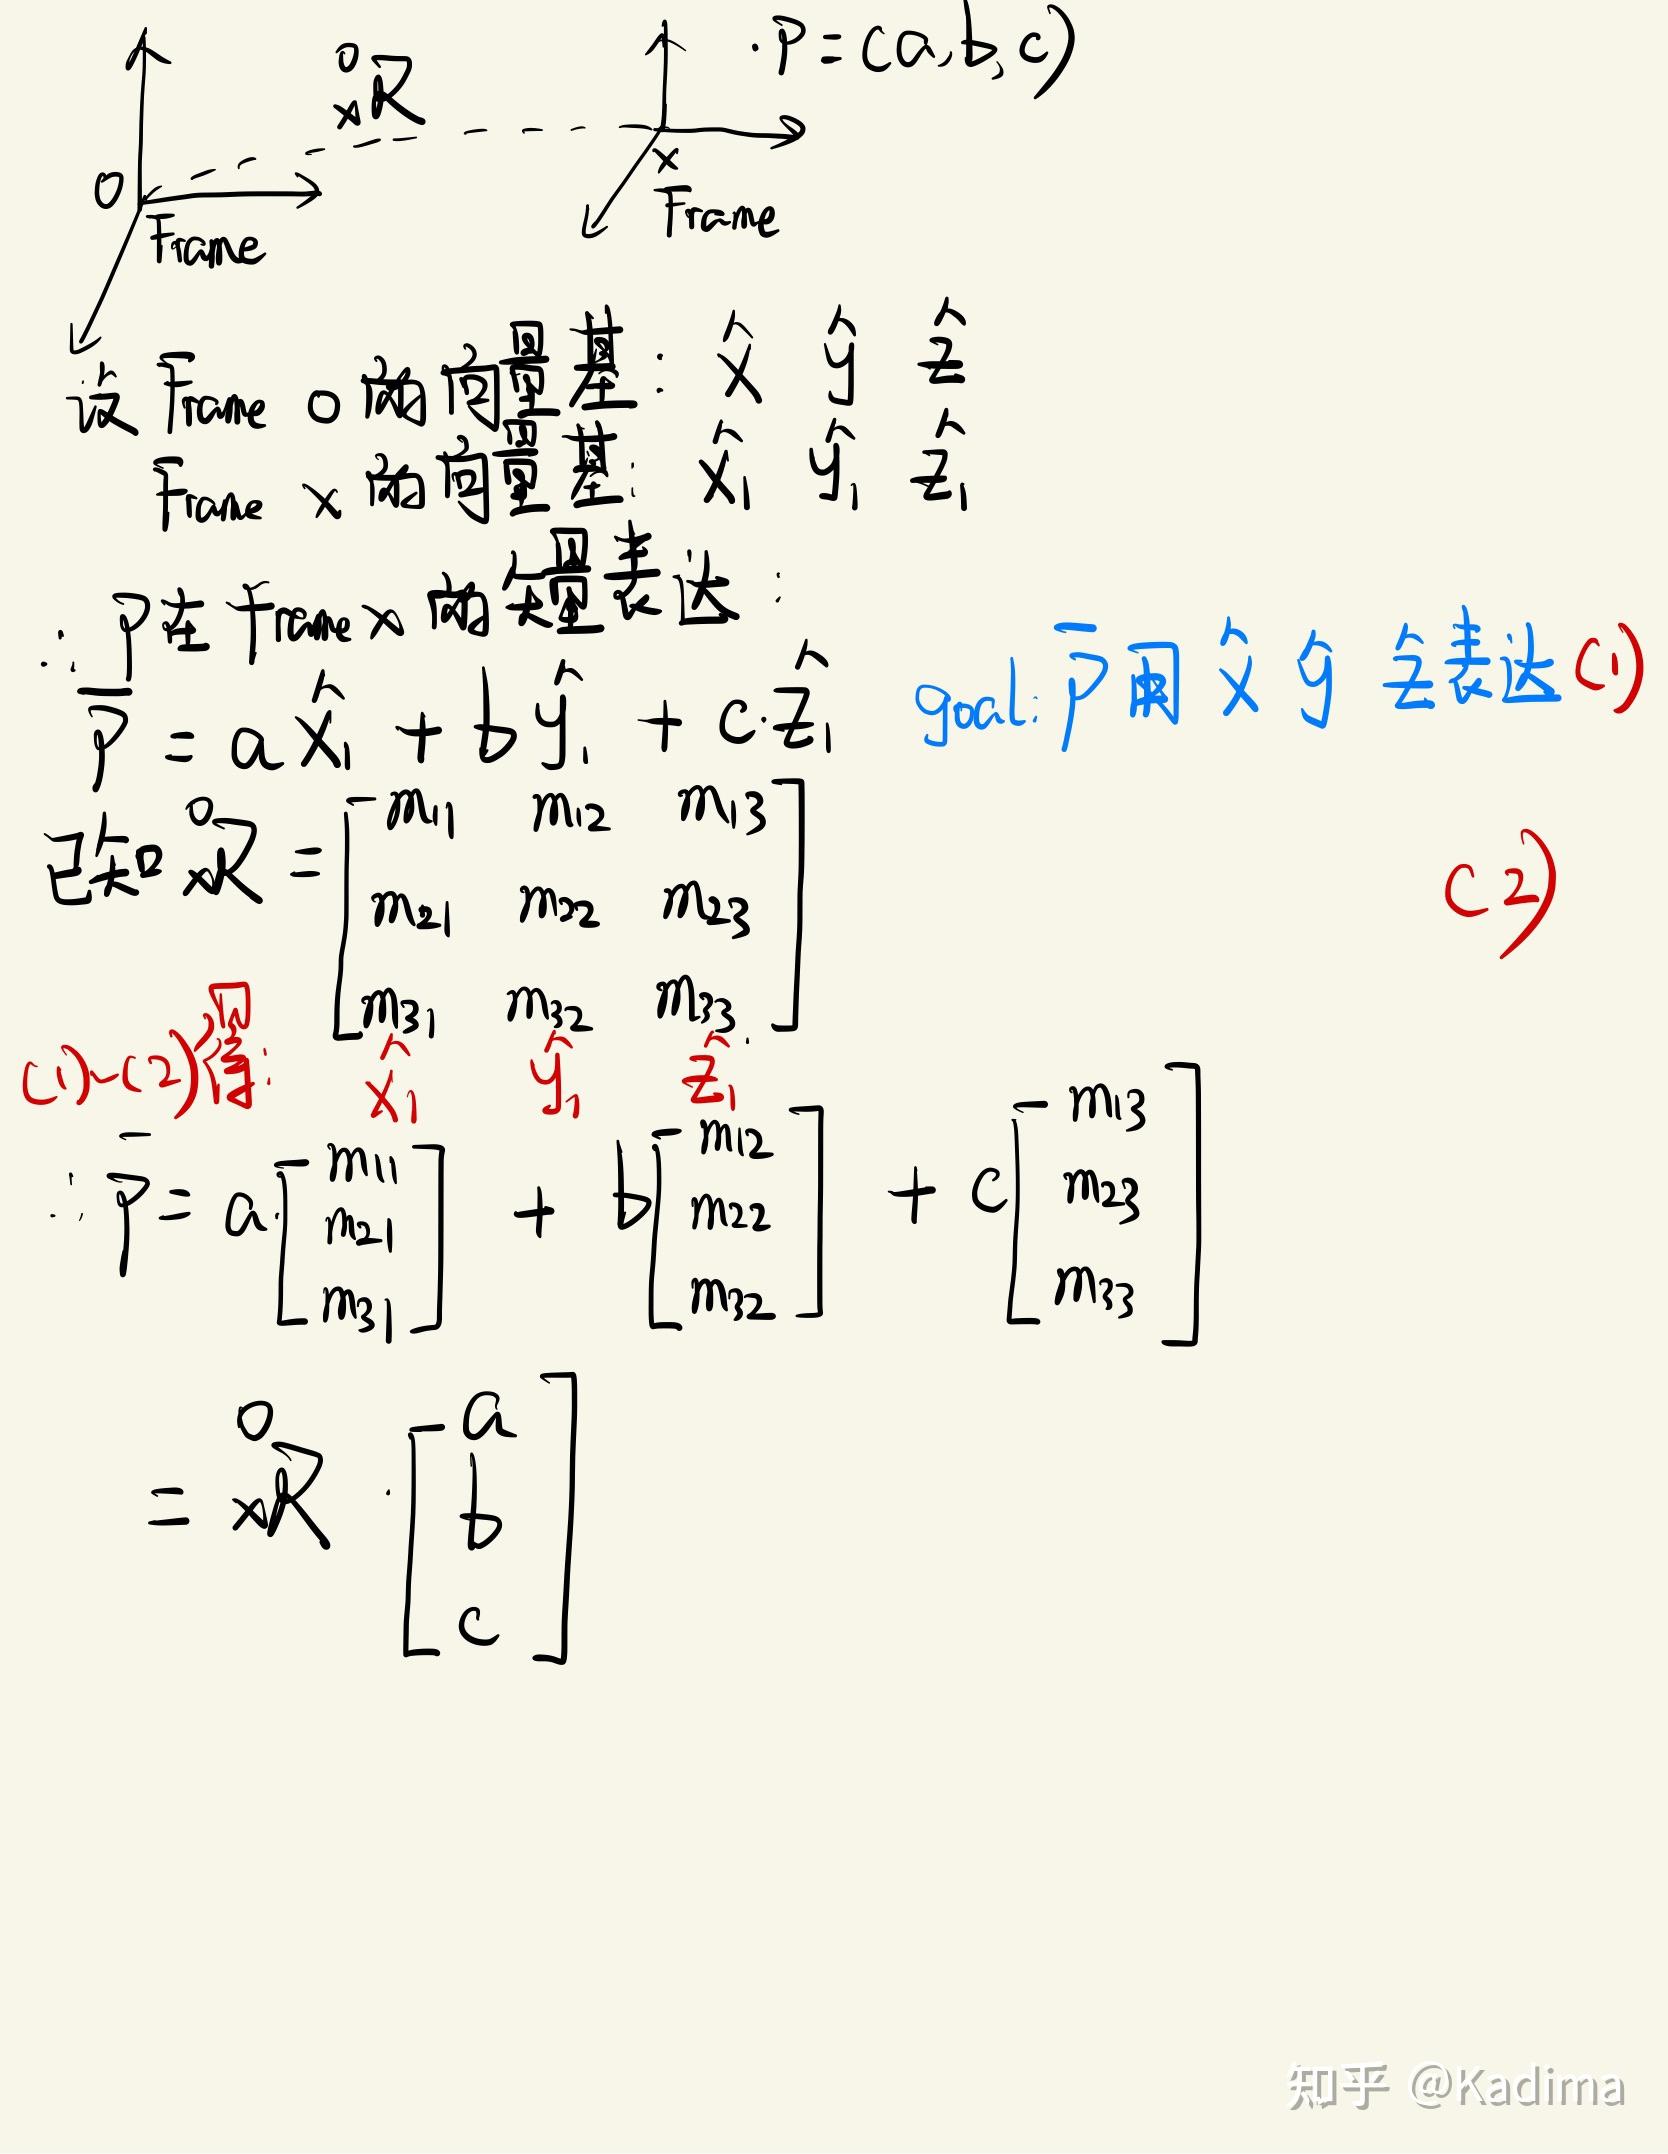 0 Frame
⁰ₓR
x Frame
.P=(a,b,c)
设 Frame 0 的向量基: x̂ ŷ ẑ
Frame x 的向量基: x̂₁ ŷ₁ ẑ₁
∴ P在 Frame x 的矢量表达:
P̄ = a x̂₁ + b ŷ₁ + c·ẑ₁
goal: P̄用 x̂ ŷ ẑ表达 (1)
已知 ⁰ₓR = [ m11 m12 m13
m21 m22 m23
m31 m32 m33 ]
(2)
(1)~(2)得: x̂₁ ŷ₁ ẑ₁
∴ P̄ = a·[ m11 m21 m31 ] + b[ m12 m22 m32 ] + c[ m13 m23 m33 ]
= ⁰ₓR · [ a
b
c ]
知乎 @Kadima